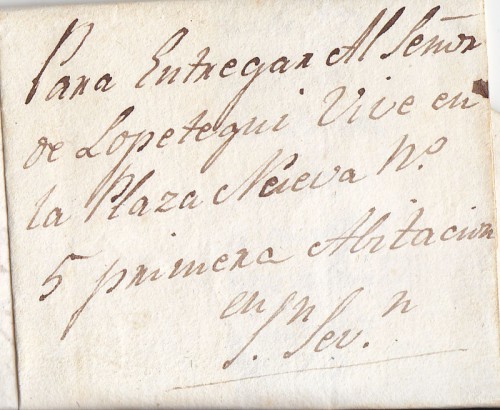 Para Entregar Al Señor
de Lopetegui Vive en
la Plaza Nueva Nº
5 primera Abitacion
en
S.ⁿ Sev.ⁿ